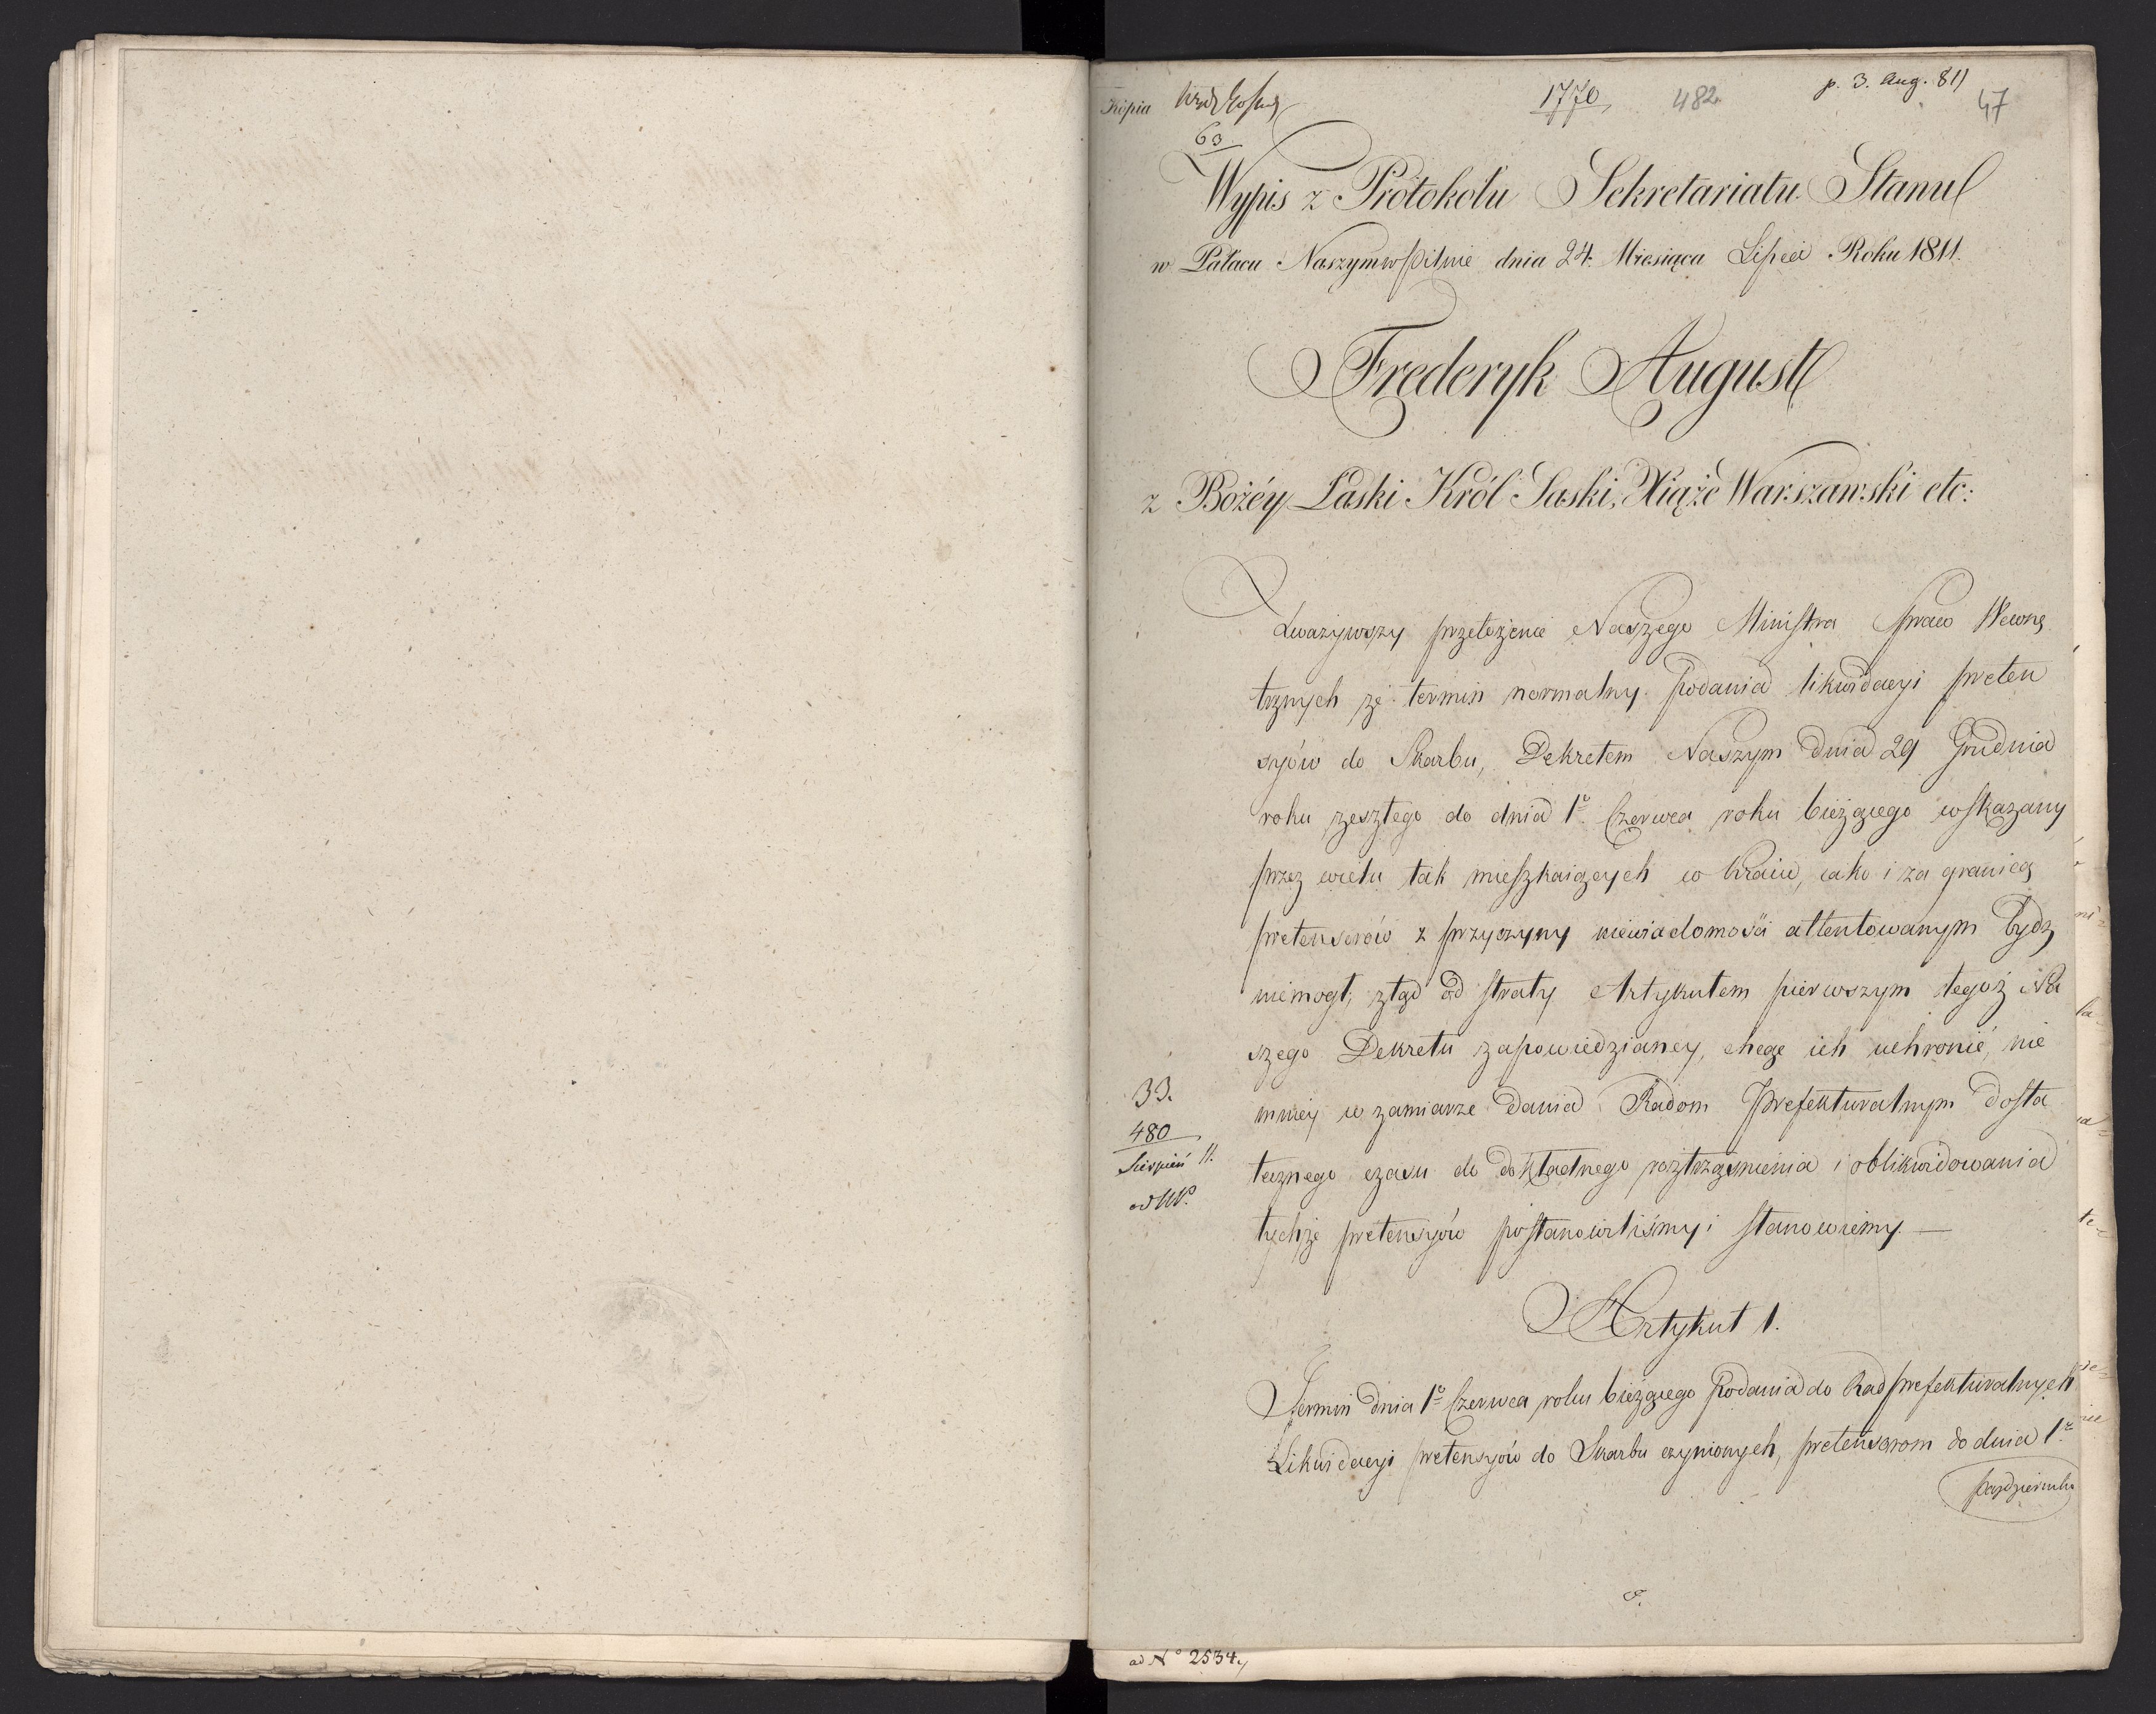 Kopia
1770
482.
p. 3. Aug. 811
47
63
Wypis z Protokołu Sekretariatu Stanu
w Pałacu Naszym w Pilnie dnia 24. Miesiąca Lipca Roku 1811.
Frederyk August
z Bożéy Łaski Król Saski, Xiąże Warszawski etc:
Zważywszy przełożenie Naszego Ministra Spraw Wewnę
trznych że termin normalny podania likwidacyi preten
syów do Skarbu, Dekretem Naszym dnia 29 Grudnia
roku zeszłego do dnia 1º Czerwca roku bieżącego wskazany
przez wielu tak mieszkaiących w kraiu, iako i za granicą
pretensorów z przyczyny niewiadomości attentowanym bydz
niemogł, ztąd od straty Artykułem pierwszym tegoż Na
szego Dekretu zapowiedzianey, chcąc ich uchronić, nie
mniey w zamiarze dania Radom Prefekturalnym dosta
tecznego czasu do dokładnego roztrząśnienia i oblikwidowania
tychże pretensyów postanowiliśmy i stanowiemy. —
33.
480
Sierpień 11.
ad
Artykuł 1.
Termin dnia 1º Czerwca roku bieżącego podania do Rad prefekturalnych
Likwidacyi pretensyów do Skarbu czynionych, pretensorom do dnia 1º
Pazdziernika
ad Nº 2534.